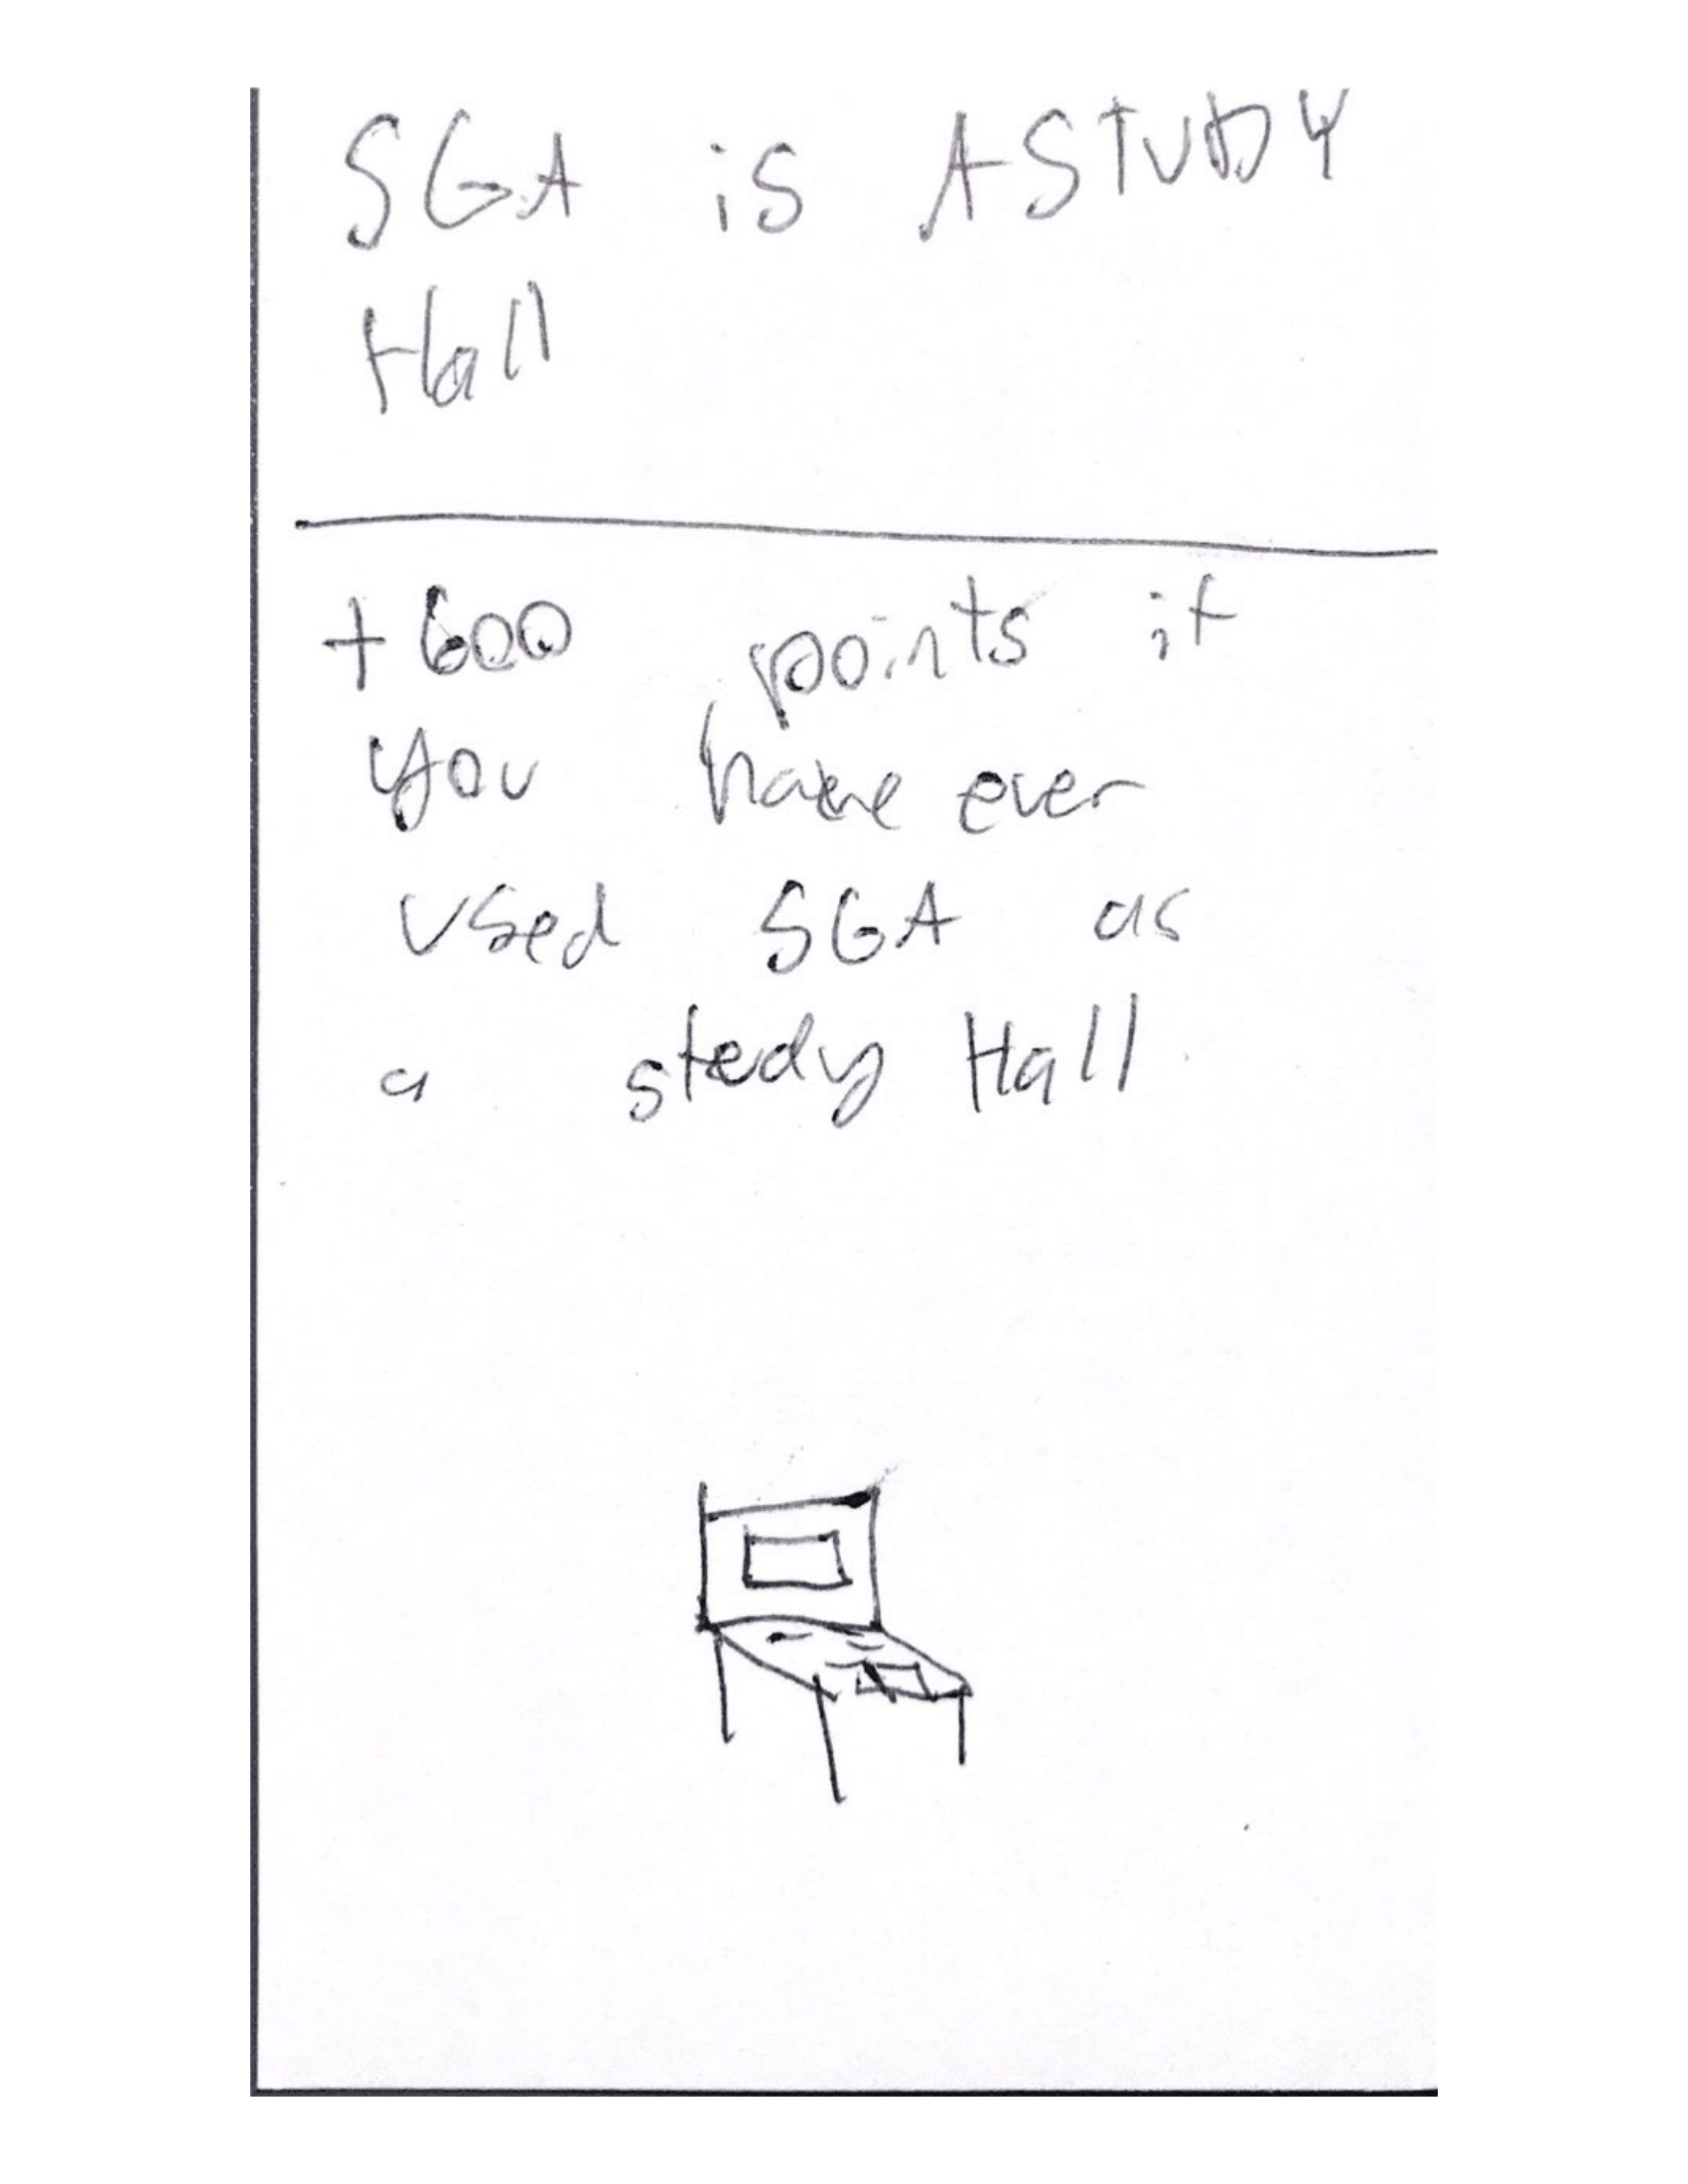 SGA is A STUDY
Hall
+600 points if
you have ever
used SGA as
a stedy Hall